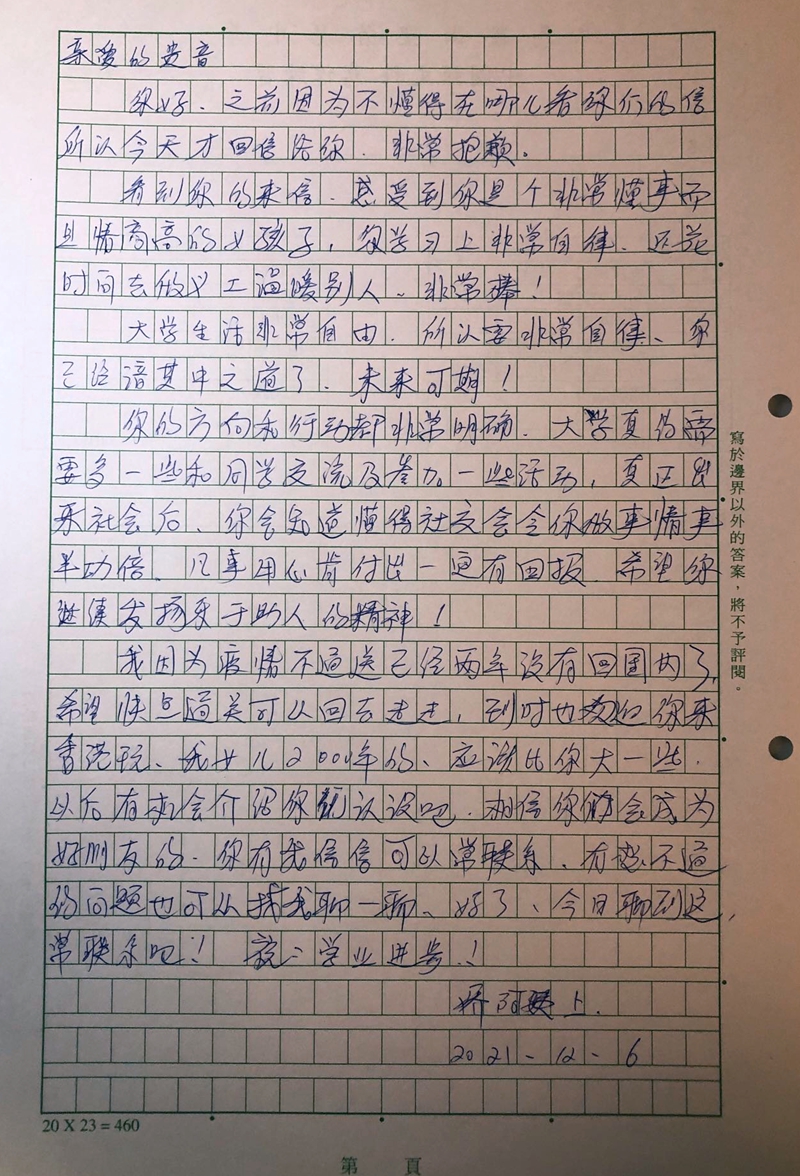 亲爱的贵音
你好、之前因为不懂得在哪儿看你们的信
所以今天才回信给你．非常抱歉。
看到你的来信．感受到你是个非常懂事而
且情商高的女孩子，你学习上非常自律、还花
时间去做义工温暖别人、非常棒！
大学生活非常自由．所以要非常自律、你
已经谙其中之道了、未来可期！
你的方向和行动都非常明确．大学真的需
要多一些和同学交流及参加一些活动，真正出
来社会后、你会知道懂得社交会令你做事情事
半功倍、凡事用心肯付出一定有回报．希望你
继续发扬乐于助人的精神！
我因为疫情不通关已经两年没有回国内了，
希望快点通关可以回去走走，到时也欢迎你来
香港玩、我女儿200 年的、应该比你大一些．
以后有机会介绍你们认识吧．相信你们会成为
好朋友的．你有我微信可以常联系、有想不通
的问题也可以找我聊一聊、好了、今日聊到这，
常联系吧！祝：学业进步！
阿姨上．
2021-12-6
寫於邊界以外的答案，將不予評閱。
20 X 23 = 460
第 頁